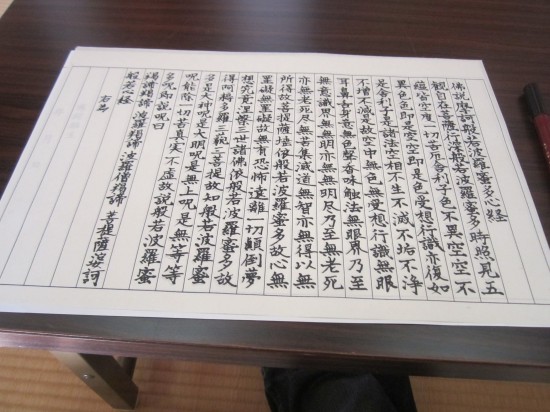 佛説摩訶般若波羅蜜多心経
観自在菩薩行深般若波羅蜜多時照見五
蘊皆空度一切苦厄舎利子色不異空空不
異色色即是空空即是色受想行識亦復如
是舎利子是諸法空相不生不滅不垢不浄
不増不減是故空中無色無受想行識無眼
耳鼻舌身意無色聲香味触法無眼界乃至
無意識界無無明亦無無明尽乃至無老死
亦無老死尽無苦集滅道無智亦無得以無
所得故菩提薩埵依般若波羅蜜多故心無
罣礙無罣礙故無有恐怖遠離一切顛倒夢
想究竟涅槃三世諸佛依般若波羅蜜多故
得阿耨多羅三藐三菩提故知般若波羅蜜
多是大神呪是大明呪是無上呪是無等等
呪能除一切苦真実不虚故説般若波羅蜜
多呪即説呪曰
羯諦羯諦 波羅羯諦 波羅僧羯諦 菩提薩婆訶
般若心経